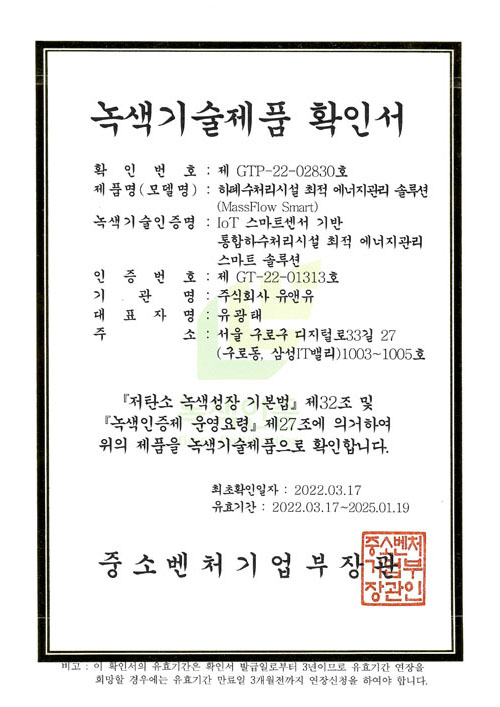 녹색기술제품 확인서
확 인 번 호 : 제 GTP-22-02830호
제품명(모델명) : 하폐수처리시설 최적 에너지관리 솔루션
(MassFlow Smart)
녹색기술인증명 : IoT 스마트센서 기반
통합하수처리시설 최적 에너지관리
스마트 솔루션
인 증 번 호 : 제 GT-22-01313호
기 관 명 : 주식회사 유앤유
대 표 자 명 : 유광태
주 소 : 서울 구로구 디지털로33길 27
(구로동, 삼성IT밸리)1003~1005호
『저탄소 녹색성장 기본법』 제32조 및
『녹색인증제 운영요령』 제27조에 의거하여
위의 제품을 녹색기술제품으로 확인합니다.
최초확인일자 : 2022.03.17
유효기간 : 2022.03.17~2025.01.19
중소벤처기업부장관
중소벤처
기업부
장관인
비고 : 이 확인서의 유효기간은 확인서 발급일로부터 3년이므로 유효기간 연장을
희망할 경우에는 유효기간 만료일 3개월전까지 연장신청을 하여야 합니다.